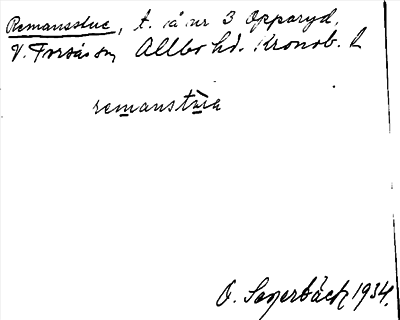 Remansstue, t. iå nr 3 Opparyd,
V. Torsås sn, Allbo hd. Kronob. l
remanstùa
O. Sagerbäck 1934.